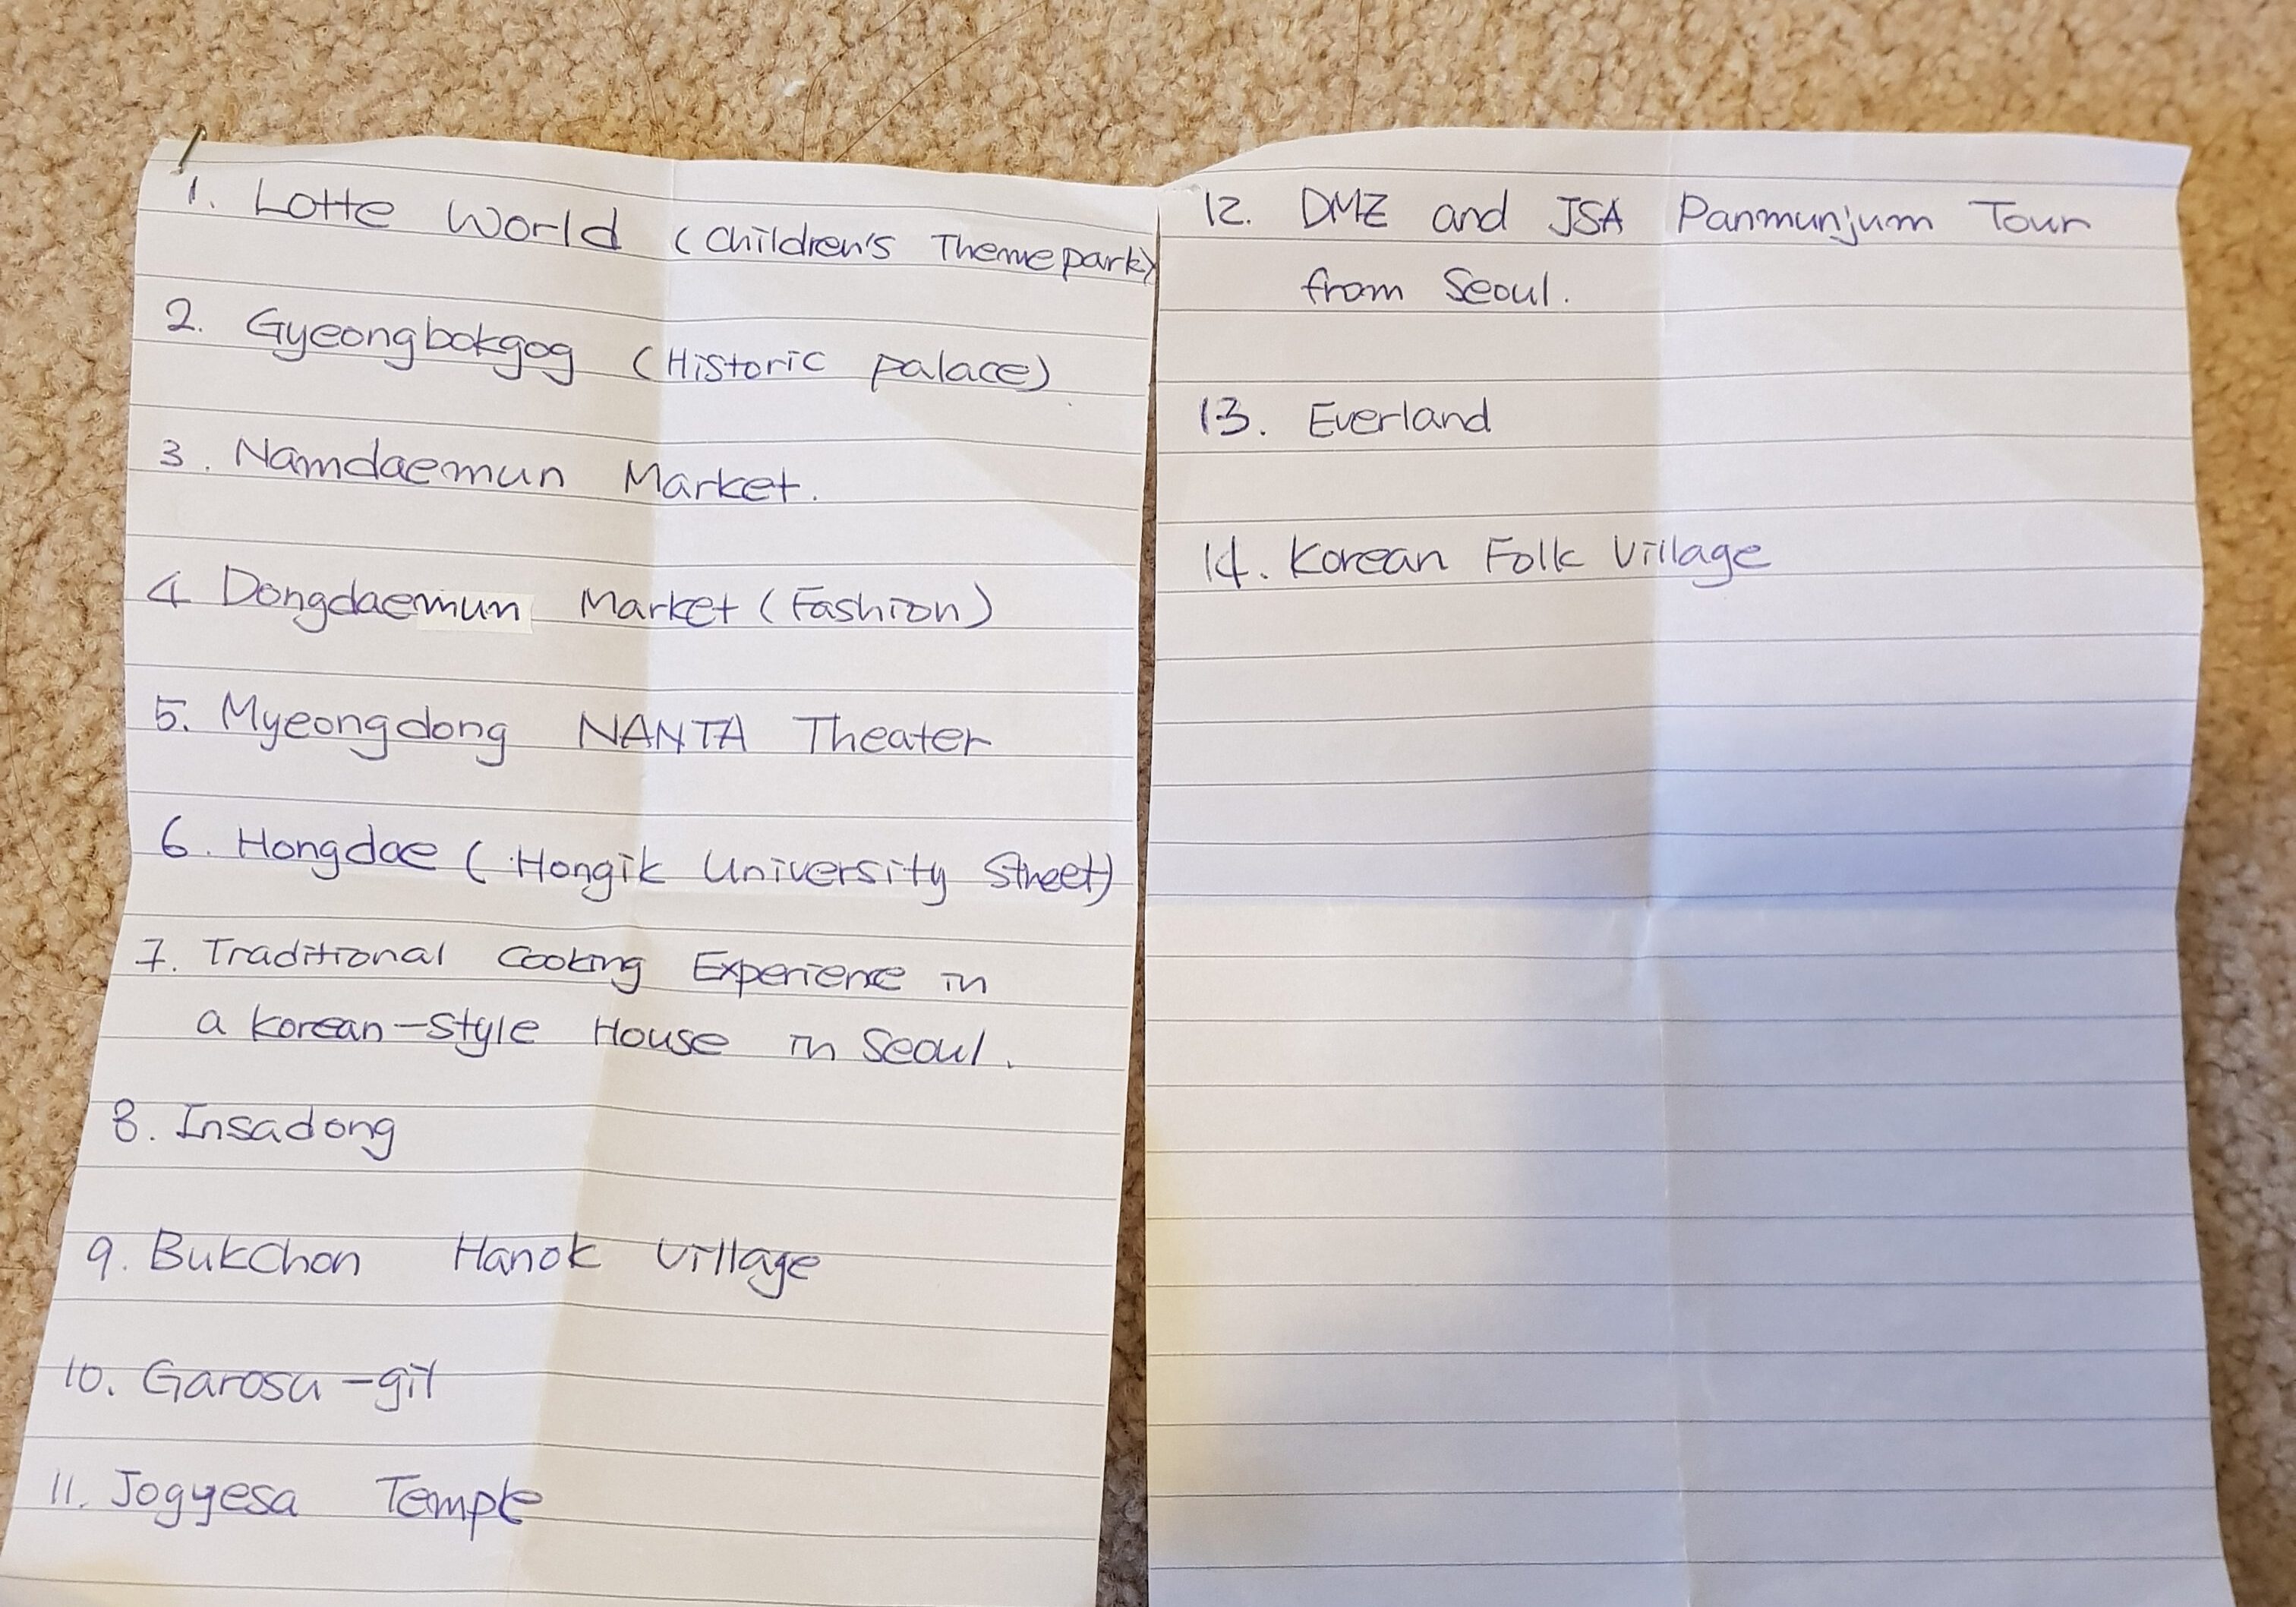 1. Lotte World (Children's Theme park)
2. Gyeongbokgog (Historic palace)
3. Namdaemun Market.
4 Dongdaemun Market (Fashion)
5. Myeongdong NANTA Theater
6. Hongdae (Hongik University Street)
7. Traditional Cooking Experience in
a Korean-Style House in Seoul.
8. Insadong
9. Bukchon Hanok Village
10. Garosu-gil
11. Jogyesa Temple
12. DMZ and JSA Panmunjum Tour
from Seoul.
13. Everland
14. Korean Folk Village